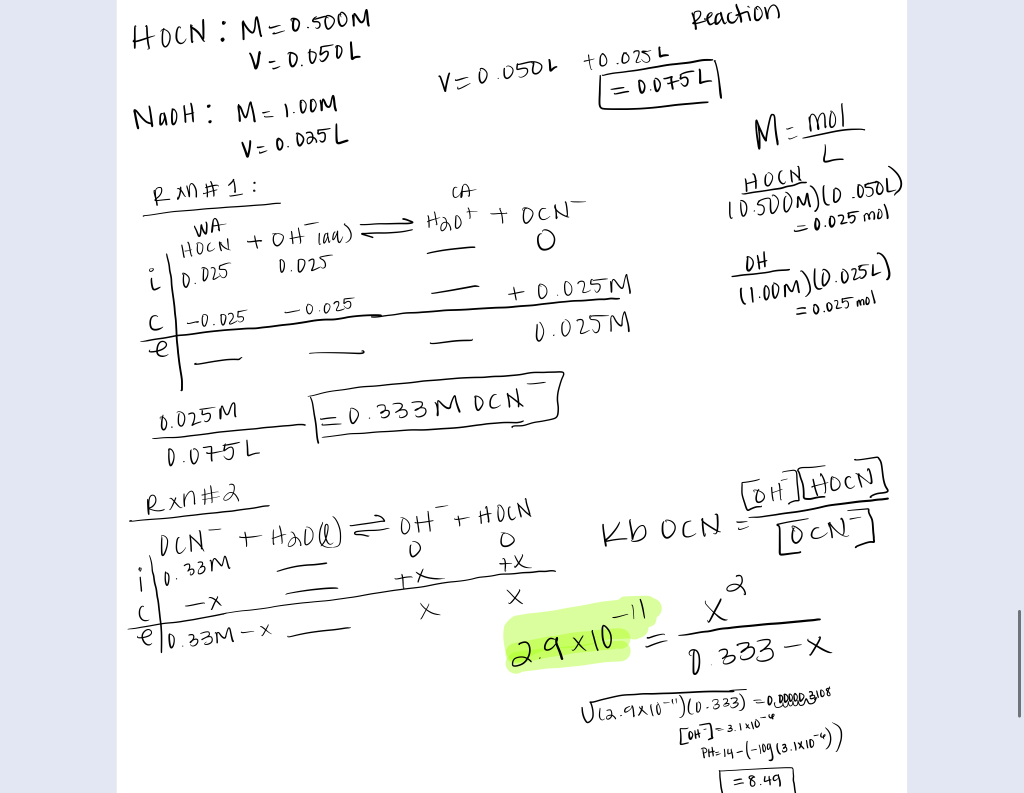 HOCN: M=0.500M
V=0.050L
Reaction
V=0.050L +0.025L
=0.075L
NaOH: M=1.00M
V=0.025L
M=mol/L
HOCN
(0.500M)(0.050L)
=0.025 mol
OH
(1.00M)(0.025L)
=0.025 mol
Rxn#1:
WA CA
HOCN + OH⁻(aq) ⇌ H2O⁺ + OCN⁻
i 0.025 0.025 — 0
c -0.025 -0.025 — +0.025M
e — — — 0.025M
0.025M
0.075L
=0.333M OCN⁻
Rxn#2
OCN⁻ + H2O(l) ⇌ OH⁻ + HOCN
i 0.33M — 0 0
c -x — +x +x
e 0.33M-x — x x
Kb OCN = [OH⁻][HOCN]/[OCN⁻]
2.9×10⁻¹¹ = x²/0.333-x
√(2.9×10⁻¹¹)(0.333) =0.000003108
[OH⁻]=3.1×10⁻⁶
PH=14-(-log(3.1×10⁻⁶))
=8.49